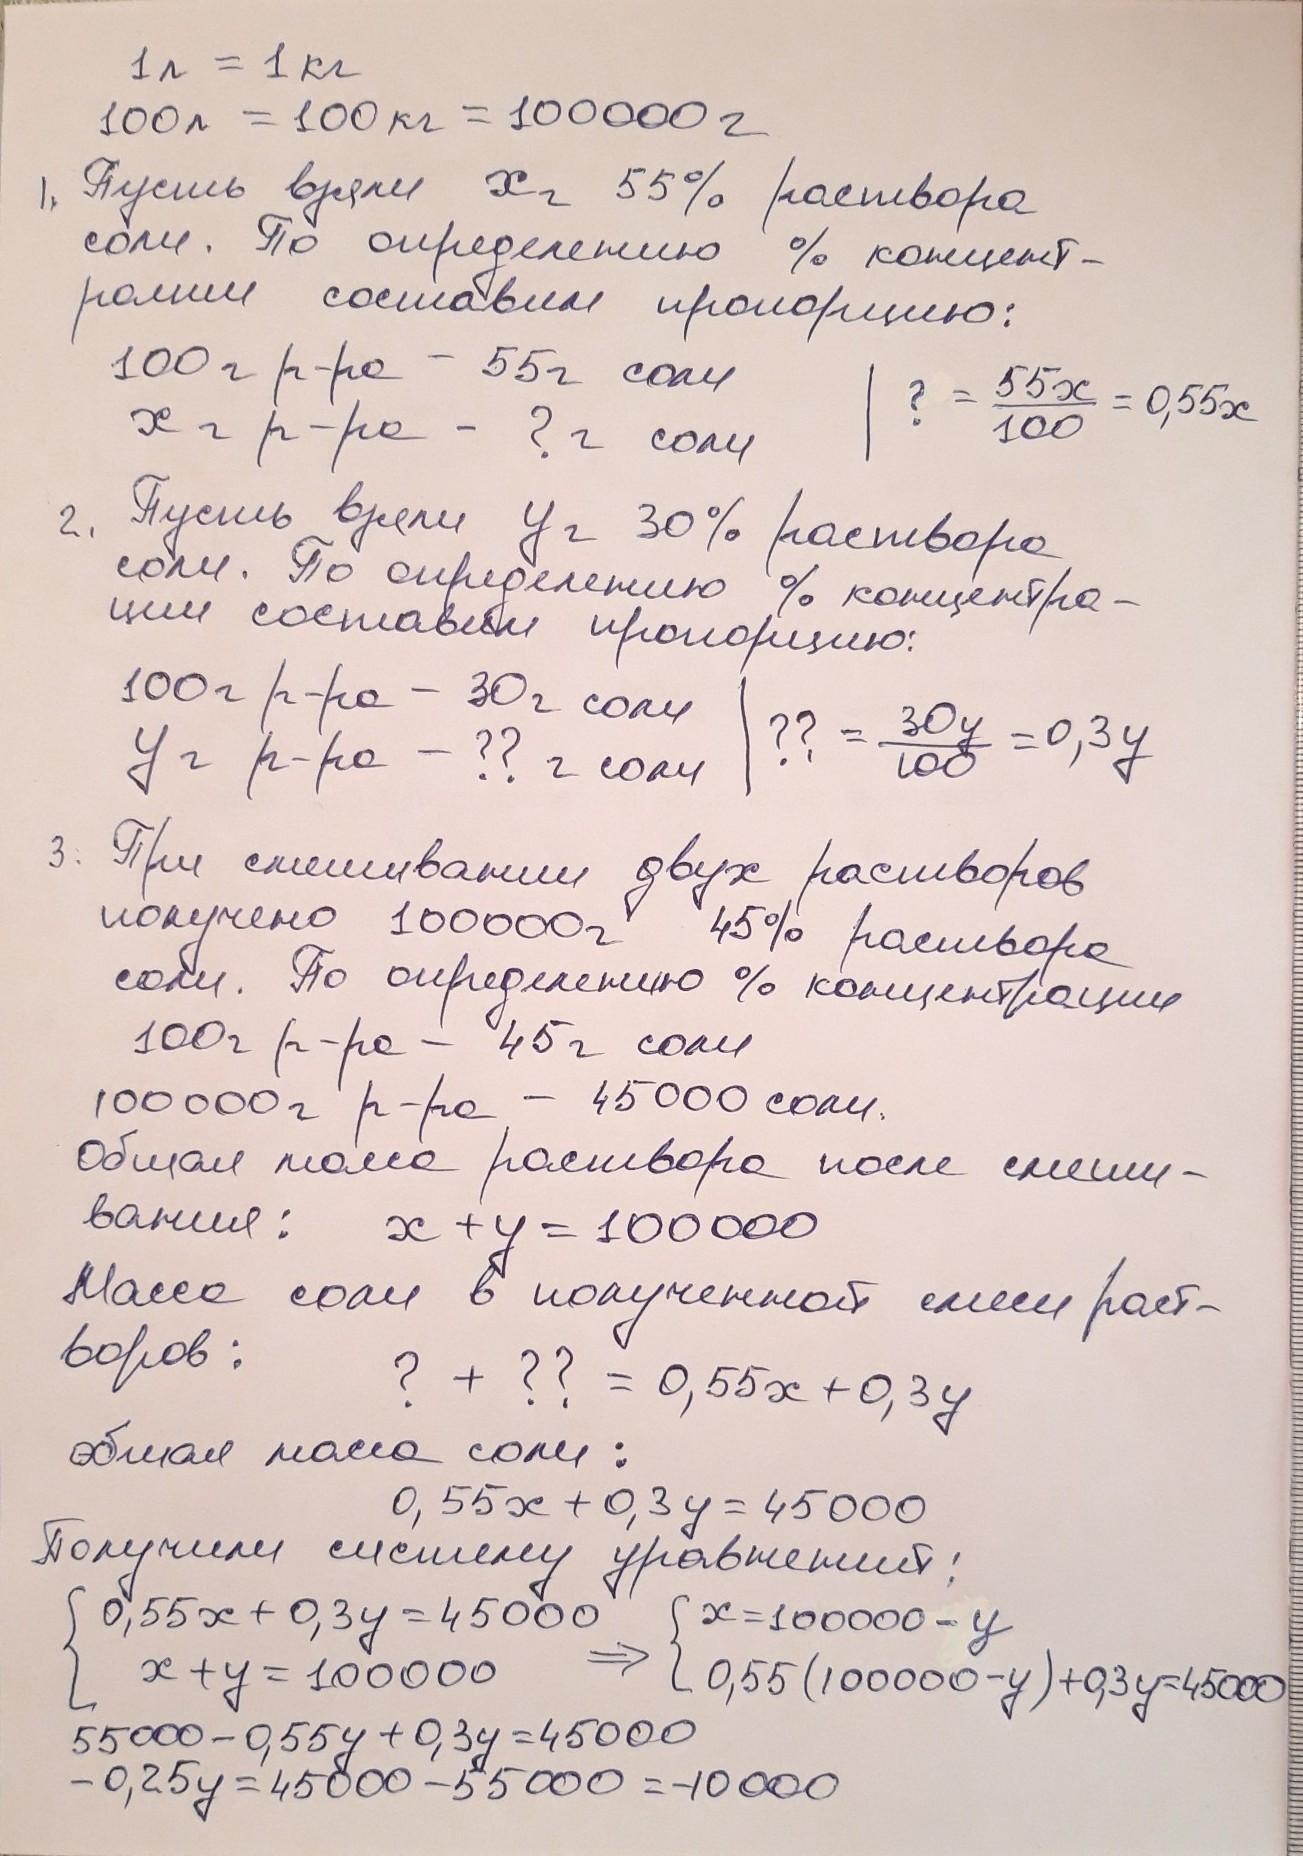 1л = 1кг
100л = 100кг = 100000г
1. Пусть взяли xг 55% раствора
соли. По определению % концент-
рации составим пропорцию:
100г р-ра - 55г соли
xг р-ра - ?г соли | ? = 55x/100 = 0,55x
2. Пусть взяли yг 30% раствора
соли. По определению % концентра-
ции составим пропорцию:
100г р-ра - 30г соли
yг р-ра - ??г соли | ?? = 30y/100 = 0,3y
3. При смешивании двух растворов
получено 100000г 45% раствора
соли. По определению % концентрации
100г р-ра - 45г соли
100000г р-ра - 45000 соли.
Общая масса раствора после смеши-
вания: x + y = 100000
Масса соли в полученной смеси раст-
воров:
? + ?? = 0,55x + 0,3y
общая масса соли:
0,55x + 0,3y = 45000
Получили систему уравнений:
{ 0,55x + 0,3y = 45000 { x = 100000 - y
x + y = 100000 => 0,55(100000 - y) + 0,3y = 45000
55000 - 0,55y + 0,3y = 45000
-0,25y = 45000 - 55000 = -10000